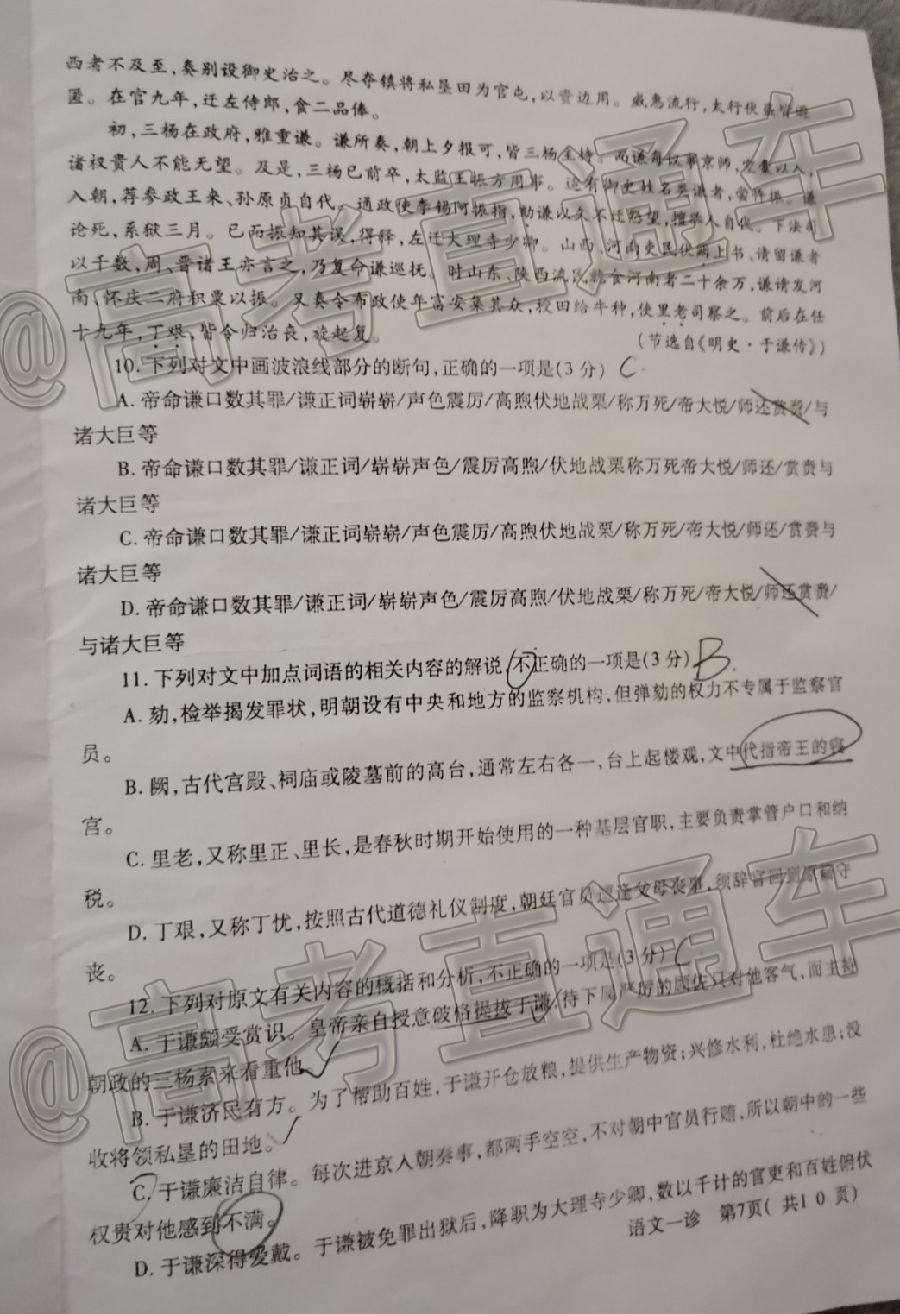 西者不及至，奏别设御史治之。尽夺镇将私垦田为官屯，以资边用。威惠流行，太行伏盗皆避
匿。在官九年，迁左侍郎，食二品俸。
初，三杨在政府，雅重谦。谦所奏，朝上夕报可，皆三杨主持。而谦每议事京师，空橐以入，
诸权贵人不能无望。及是，三杨已前卒，太监王振方用事。适有御史姓名类谦者，尝忤振。谦
入朝，荐参政王来、孙原贞自代。通政使李锡阿振指，劾谦以久不迁怨望，擅举人自代。下法司
论死，系狱三月。已而振知其误，得释，左迁大理寺少卿。山西、河南吏民伏阙上书，请留谦者
以千数，周、晋诸王亦言之，乃复命谦巡抚。时山东、陕西流民就食河南者二十余万，谦请发河
南、怀庆二府积粟以振。又奏令布政使年富安集其众，授田给牛种，使里老司察之。前后在任
十九年，丁艰，皆令归治丧，旋起复。
（节选自《明史·于谦传》）
10.下列对文中画波浪线部分的断句，正确的一项是(3分) C
A.帝命谦口数其罪/谦正词崭崭/声色震厉/高煦伏地战栗/称万死/帝大悦/师还赏赉/与
诸大巨等
B.帝命谦口数其罪/谦正词/崭崭声色/震厉高煦/伏地战栗称万死帝大悦/师还/赏赉与
诸大巨等
C.帝命谦口数其罪/谦正词崭崭/声色震厉/高煦伏地战栗/称万死/帝大悦/师还/赏赉与
诸大巨等
D.帝命谦口数其罪/谦正词/崭崭声色/震厉高煦/伏地战栗/称万死/帝大悦/师还赏赉/
与诸大巨等
11.下列对文中加点词语的相关内容的解说，不正确的一项是(3分) B
A.劾，检举揭发罪状，明朝设有中央和地方的监察机构，但弹劾的权力不专属于监察官
员。
B.阙，古代宫殿、祠庙或陵墓前的高台，通常左右各一，台上起楼观，文中代指帝王的寝
宫。
C.里老，又称里正、里长，是春秋时期开始使用的一种基层官职，主要负责掌管户口和纳
税。
D.丁艰，又称丁忧，按照古代道德礼仪制度，朝廷官员遭逢父母丧事，须辞官回到原籍守
丧。
12.下列对原文有关内容的概括和分析，不正确的一项是(3分) C
A.于谦颇受赏识。皇帝亲自授意破格提拔于谦，待下属严厉的顾佐只对他客气，而主持
朝政的三杨素来看重他。
B.于谦济民有方。为了帮助百姓，于谦开仓放粮，提供生产物资；兴修水利，杜绝水患；没
收将领私垦的田地。
C.于谦廉洁自律。每次进京入朝奏事，都两手空空，不对朝中官员行贿，所以朝中的一些
权贵对他感到不满。
D.于谦深得爱戴。于谦被免罪出狱后，降职为大理寺少卿，数以千计的官吏和百姓俯伏
语文一诊 第7页（共10页）
@高考直通车
@高考直通车